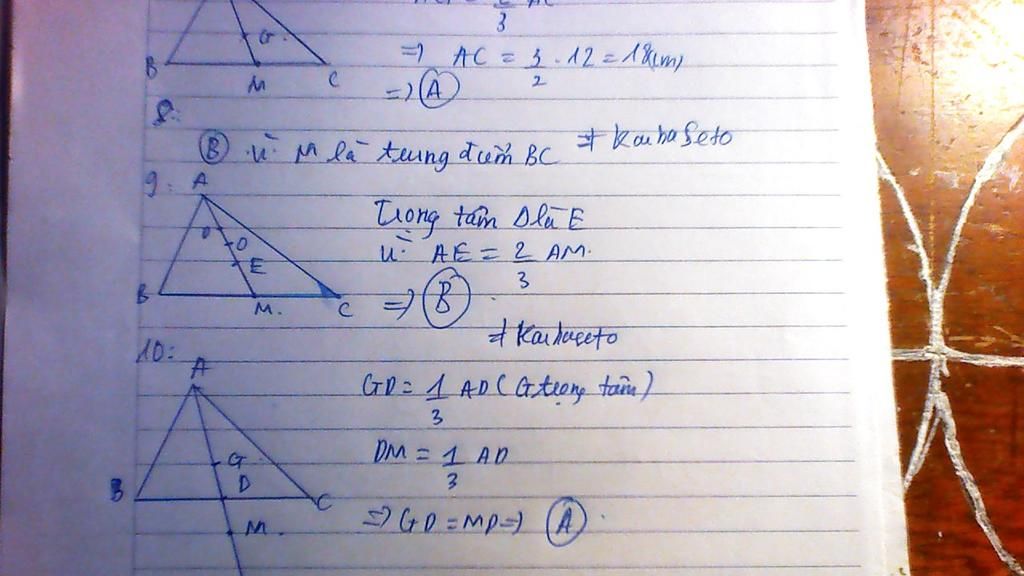 3
G.
B
M
C
=> AC = 3/2 . 12 = 18(cm)
=> A
8:
B vì M là trung điểm BC
# Kaihaseto
9:
A
O
E
B
M.
C
Trọng tâm Δ là E
vì: AE = 2/3 AM.
=> B
# Kaihaseto
10:
A
G
D
B
C
M.
GD = 1/3 AD (G trọng tâm)
DM = 1/3 AD
=> GD = MD => A